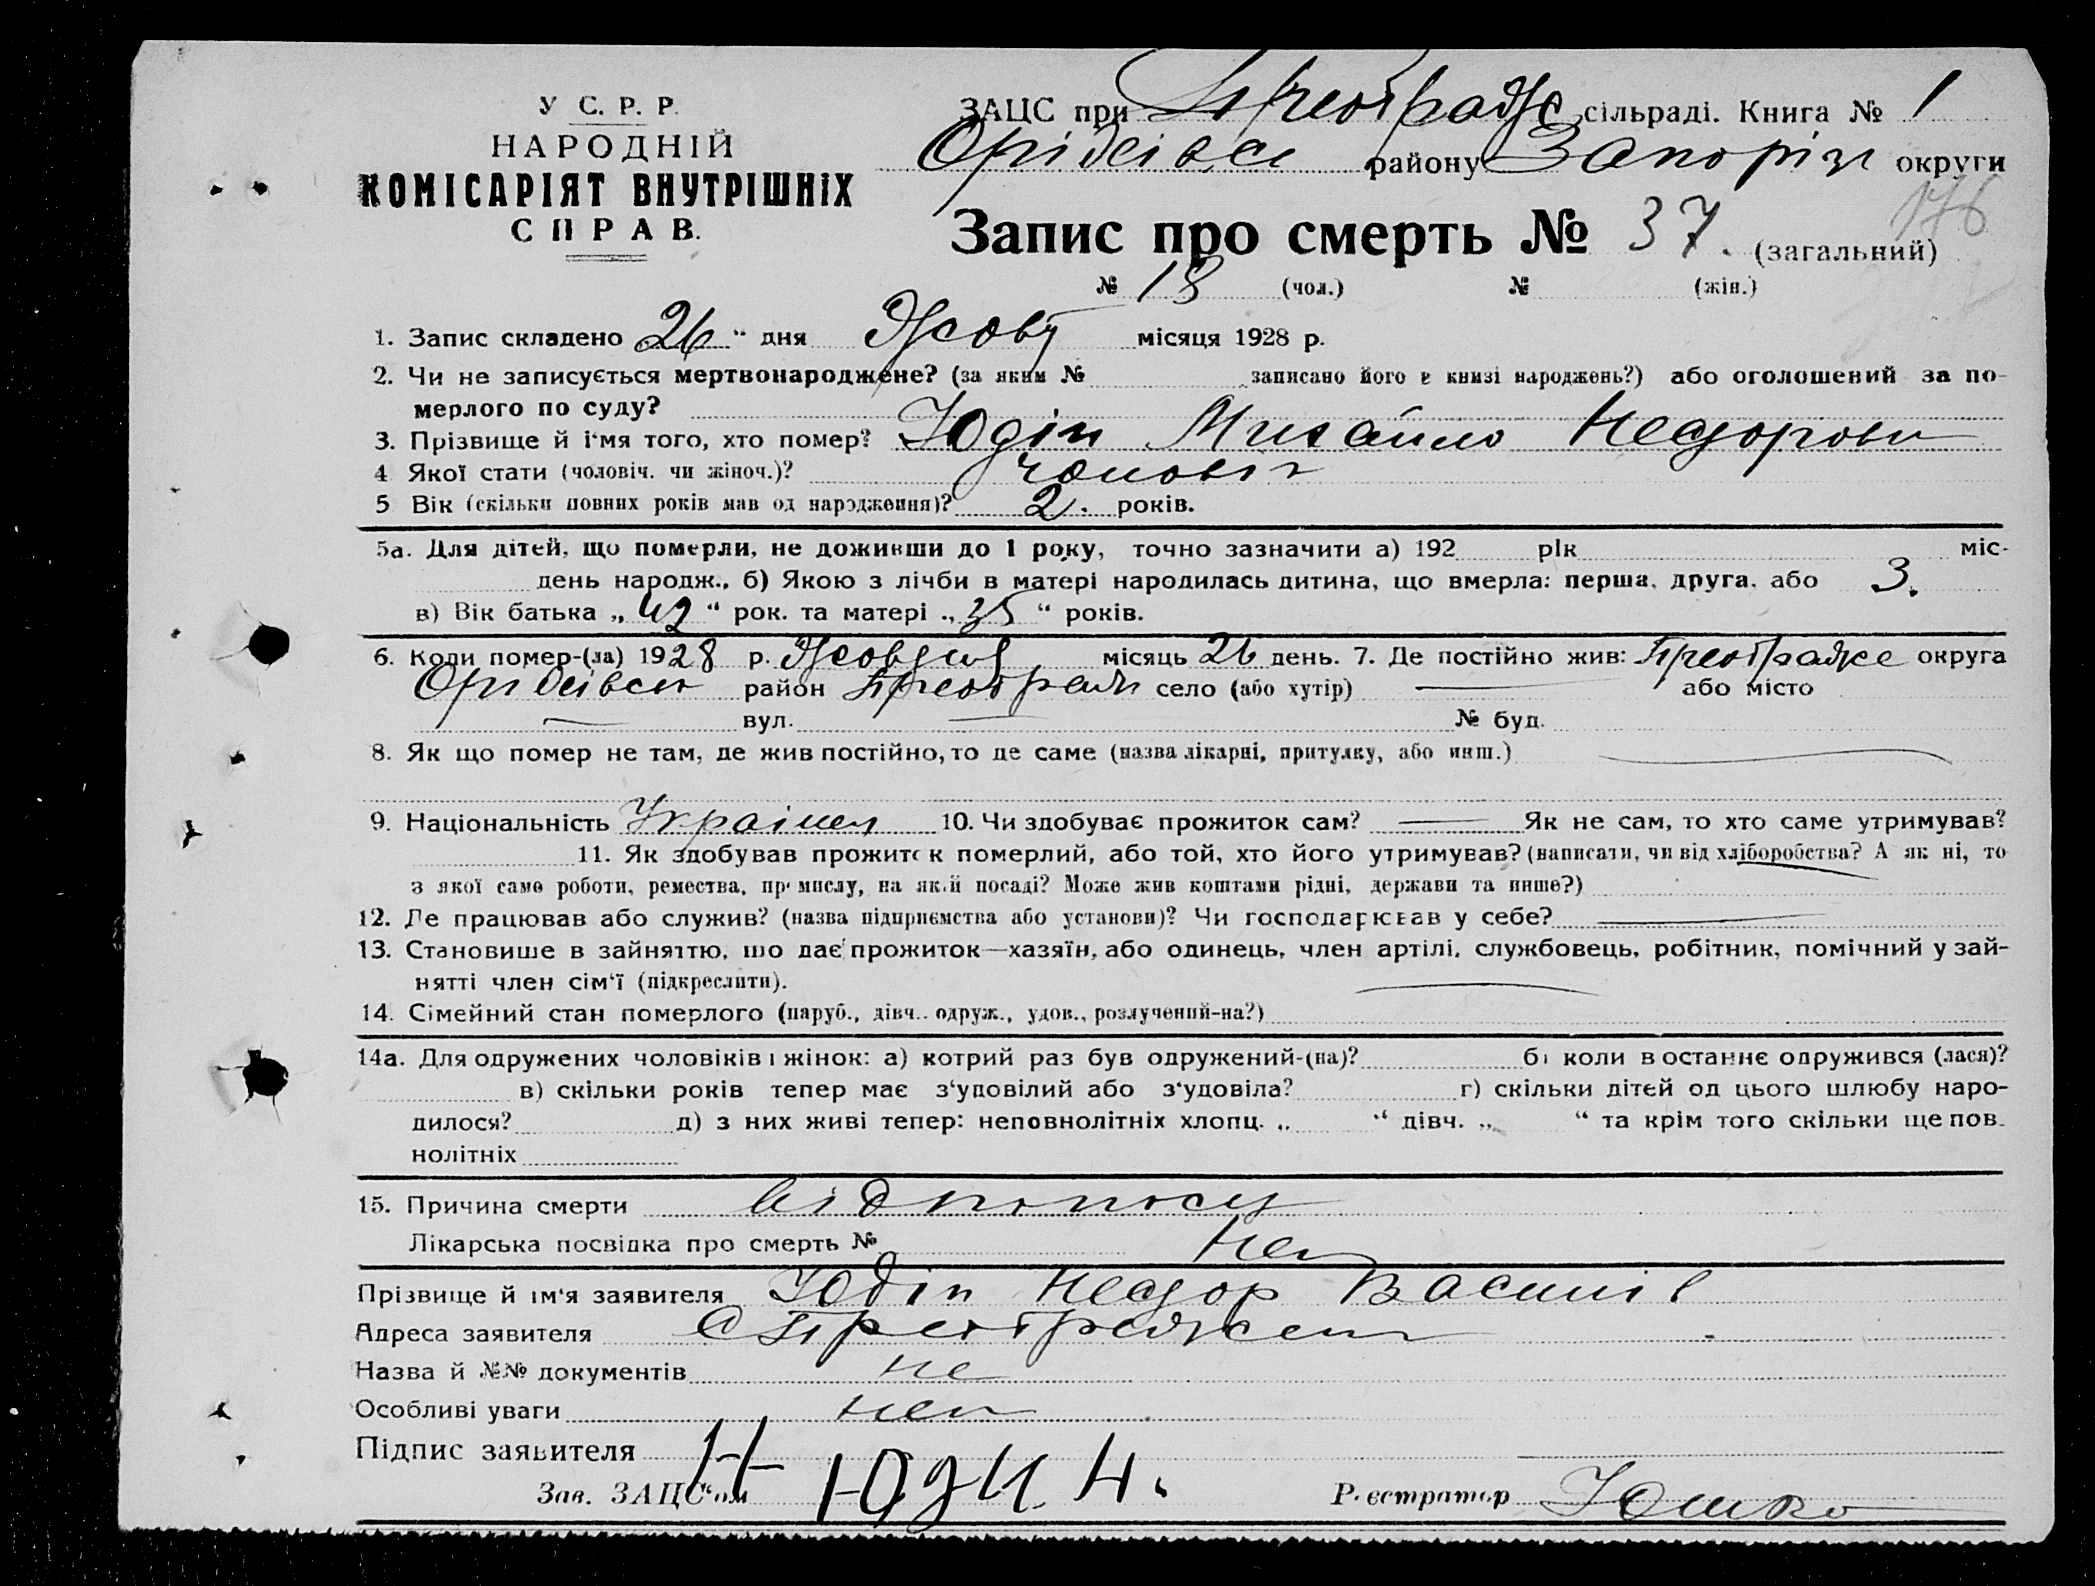 У С. Р. Р.
НАРОДНІЙ
КОМІСАРІЯТ ВНУТРІШНІХ
СПРАВ.
ЗАЦС при Преображе сільраді. Книга № 1
Оріхівсь району Запоріз округи
176
Запис про смерть № 37. (загальний)
№ 18 (чол.) № (жін.)
1. Запис складено 26 " дня Жовт місяця 1928 р.
2. Чи не записується мертвонароджене? (за яким № записано його в книзі народжень?) або оголошений за по-
мерлого по суду?
3. Прізвище й ім'я того, хто помер? Юдін Михайло Несторови
4 Якої стати (чоловіч. чи жіноч.)? чоловік
5 Вік (скільки повних років мав од народження)? 2. років.
5а. Для дітей, що померли, не доживши до 1 року, точно зазначити а) 192 рік міс-
день народж., б) Якою з лічби в матері народилась дитина, що вмерла: перша, друга, або 3.
в) Вік батька „ 42 " рок. та матері „ 35 " років.
6. Коли помер-(ла) 1928 р. Жовтня місяць 26 день. 7. Де постійно жив: Преображе округа
Оріхівськ район Преображ село (або хутір) — або місто
— вул. — № буд.
8. Як що помер не там, де жив постійно, то де саме (назва лікарні, притулку, або инш.)
9. Національність Українец 10. Чи здобуває прожиток сам? — Як не сам, то хто саме утримував?
11. Як здобував прожиток померлий, або той, хто його утримував? (написати, чи від хліборобства? А як ні, то
з якої саме роботи, ремества, промислу, на якій посаді? Може жив коштами рідні, держави та инше?)
12. Де працював або служив? (назва підприємства або установи)? Чи господарював у себе?
13. Становище в зайняттю, що дає прожиток—хазяїн, або одинець, член артілі, службовець, робітник, помічний у зай-
нятті член сім'ї (підкреслити).
14. Сімейний стан померлого (паруб., дівч.. одруж., удов., розлучений-на?)
14а. Для одружених чоловіків і жінок: а) котрий раз був одружений-(на)? б) коли в останнє одружився (лася)?
в) скільки років тепер має з'уповілий або з'удовіла? г) скільки дітей од цього шлюбу наро-
дилося? д) з них живі тепер: неповнолітніх хлопц. „ " дівч. „ " та крім того скільки ще пов-
нолітніх
15. Причина смерти від поносу
Лікарська посвідка про смерть № нет
Прізвище й ім'я заявителя Юдін Нестор Василів
Адреса заявителя с Преображен
Назва й №№ документів не
Особливі уваги нет
Підпис заявителя Н Юдин Н.
Зав. ЗАЦС'ом Реєстратор